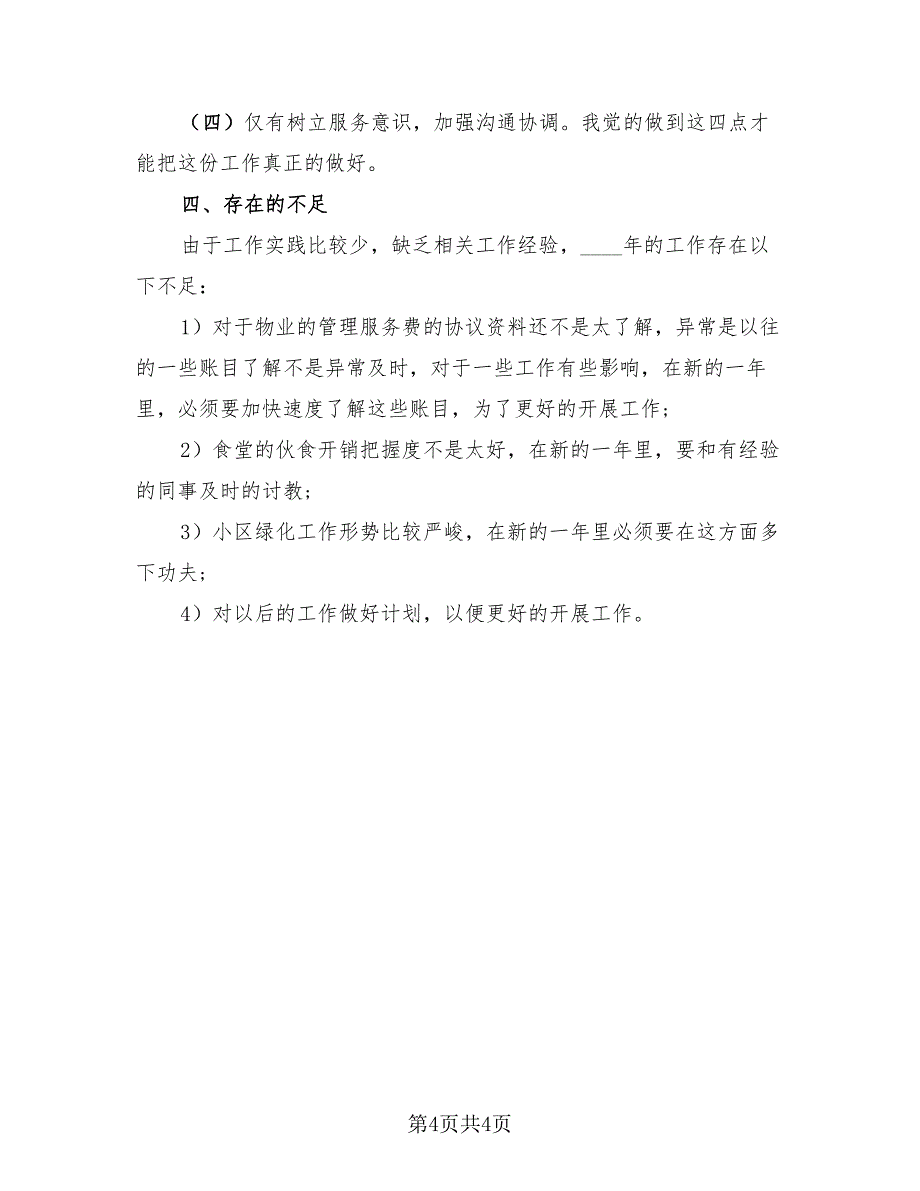 （四）仅有树立服务意识，加强沟通协调。我觉的做到这四点才
能把这份工作真正的做好。
四、存在的不足
由于工作实践比较少，缺乏相关工作经验，____年的工作存在以
下不足：
1）对于物业的管理服务费的协议资料还不是太了解，异常是以往
的一些账目了解不是异常及时，对于一些工作有些影响，在新的一年
里，必须要加快速度了解这些账目，为了更好的开展工作;
2）食堂的伙食开销把握度不是太好，在新的一年里，要和有经验
的同事及时的讨教;
3）小区绿化工作形势比较严峻，在新的一年里必须要在这方面多
下功夫;
4）对以后的工作做好计划，以便更好的开展工作。
第4页共4页